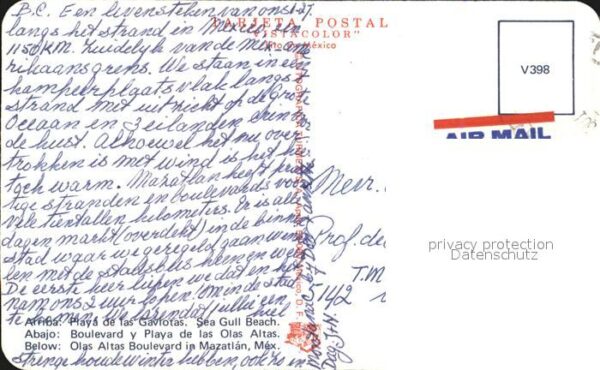 B.C. Een levensteken van ons 1-27
langs het strand in Mexico en
1150 KM. Zuidelijk van de Mex. am
rikaans grens. We staan in een
kampeerplaats vlak langs
strand met uitzicht op de Grote
Oceaan en 3 eilanden
de kust. Alhoewel het nu over
trokken is met wind is het hier
toch warm. Mazatlan heeft
tige stranden en boulevards voor
vele tientallen kilometers. Er is alle
dagen markt (overdekt) in de binnen
stad waar we geregeld gaan win
len met de stadsbus heen en weer
De eerste keer liepen we dat en het
nam ons 2 uur lopen! Om in de stad
te komen. We lazen dat jullie een heel
strenge koude winter hebben, ook zo in
TARJETA POSTAL
"VISTACOLOR"
Hecho en México
V398
AIR MAIL
Mevr.
Prof. de
T.M
142
privacy protection
Datenschutz
Arriba: Playa de las Gaviotas. Sea Gull Beach.
Abajo: Boulevard y Playa de las Olas Altas.
Below: Olas Altas Boulevard in Mazatlán, Méx.
Dag J+H.